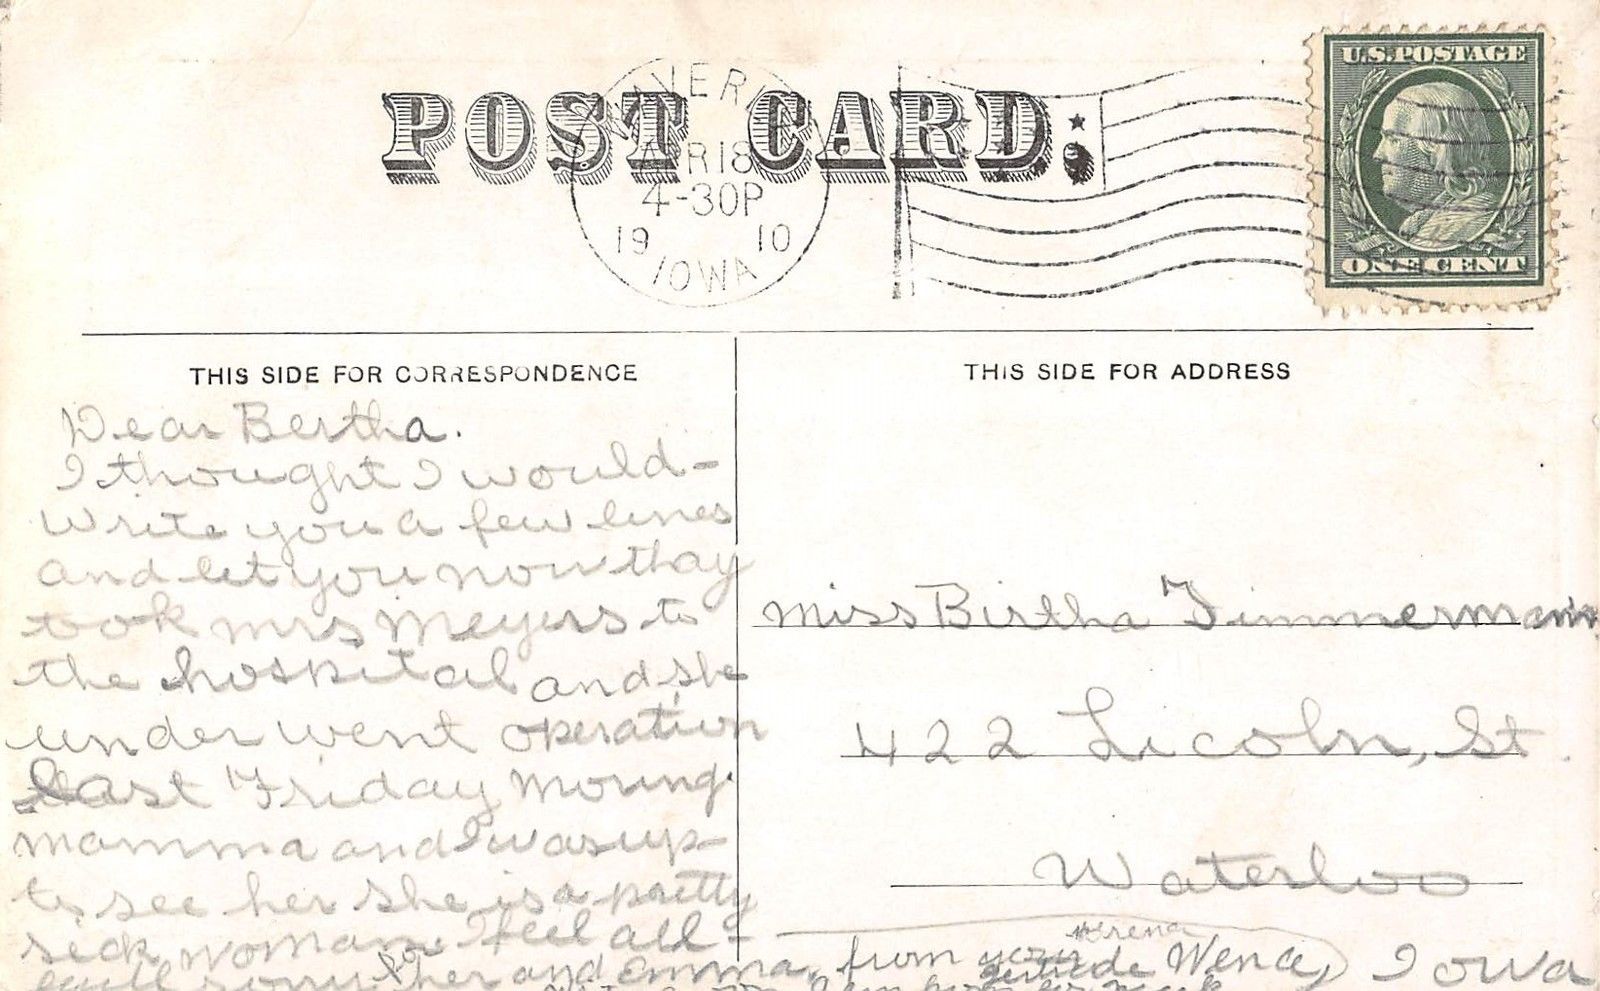 POST CARD.
WAVERLY
APR 18
4-30P
19 10
IOWA
U.S. POSTAGE
ONE CENT
THIS SIDE FOR CORRESPONDENCE
Dear Bertha.
I thought I would-
write you a few lines
and let you now thay
took mrs Meyers to
the hospital and she
under went operation
last Friday moring.
mamma and I was up-
to see her she is a pretty
sick woman I feel all-
for her and Emma,
THIS SIDE FOR ADDRESS
Miss Birtha Timmermann
422 Licoln, St.
Waterloo
Iowa
from your
Wena,